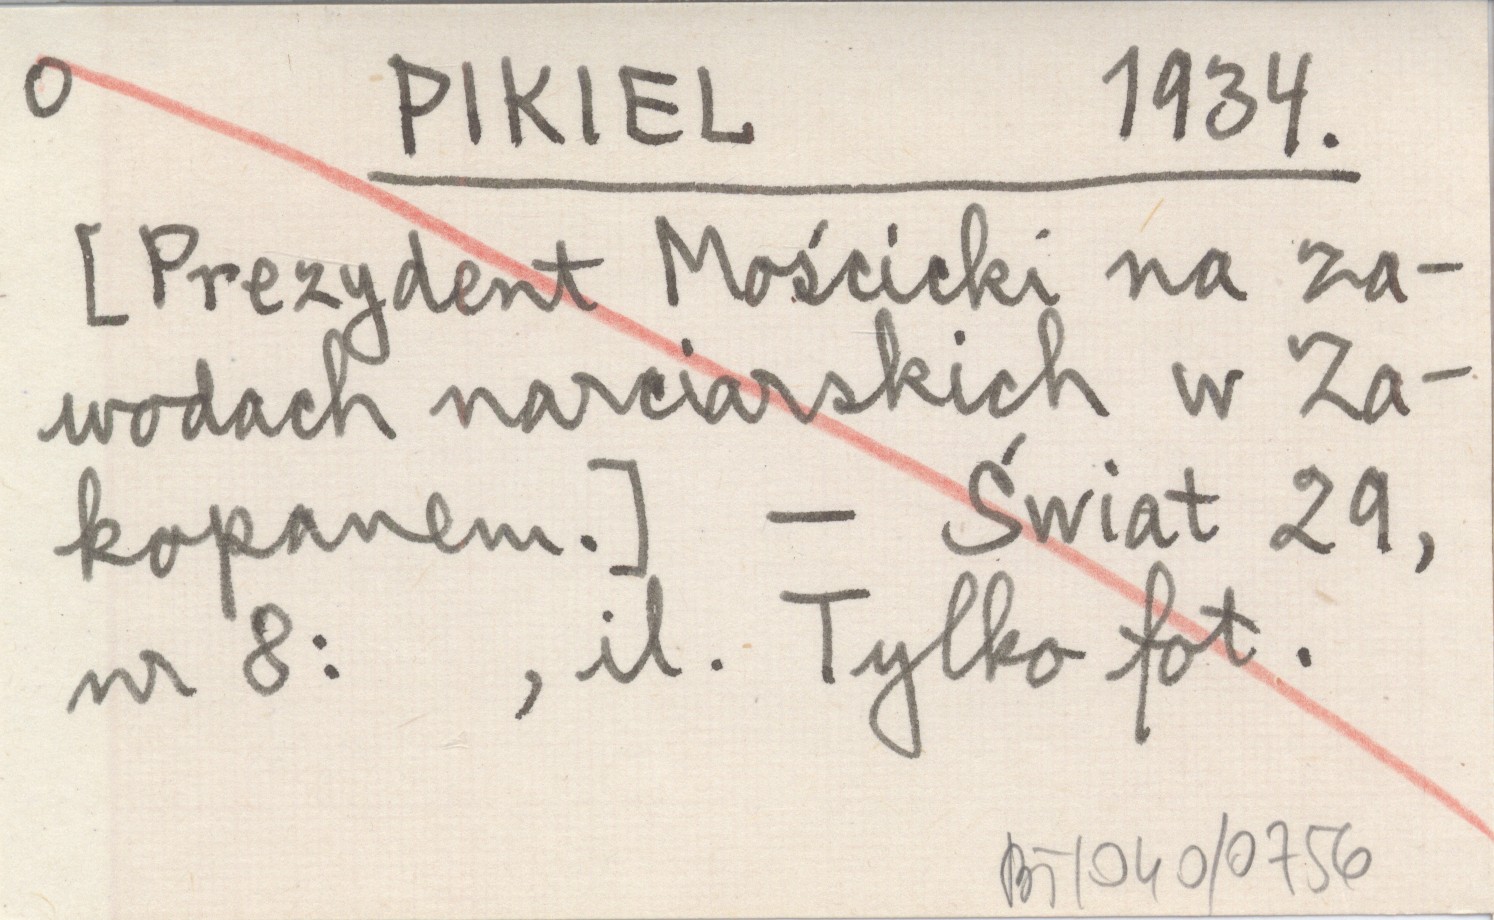 O PIKIEL 1934.
[Prezydent Mościcki na za-
wodach narciarskich w Za-
kopanem.] — Świat 29,
nr 8: , il. Tylko fot.
BT/040/0756